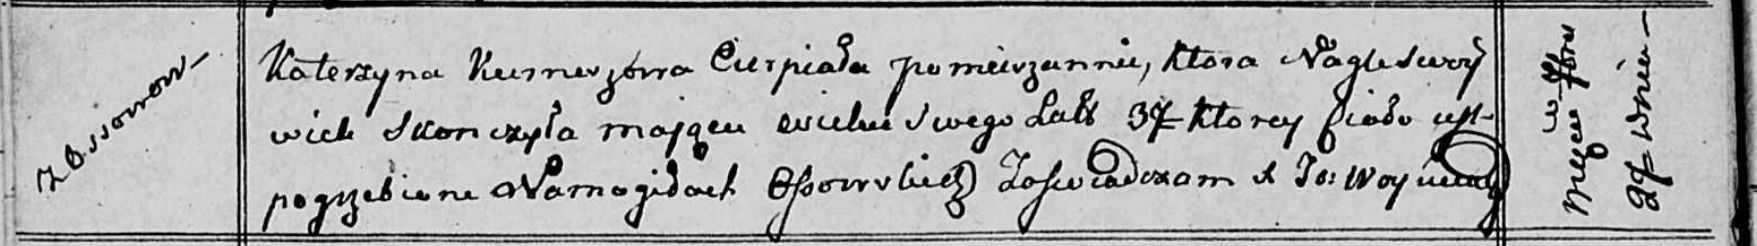 z Ossowow
Katerzyna Kusnerzowa Cierpiała pomieszannie, ktora Nagle swoy
wiek Skonczyła maiącu wieku Swego Lałt 37 Ktorey Ciało iest
pogrzebione na mogiłach Ossowskich Zaswiadczam X Jo:
Msca
27 Dnia